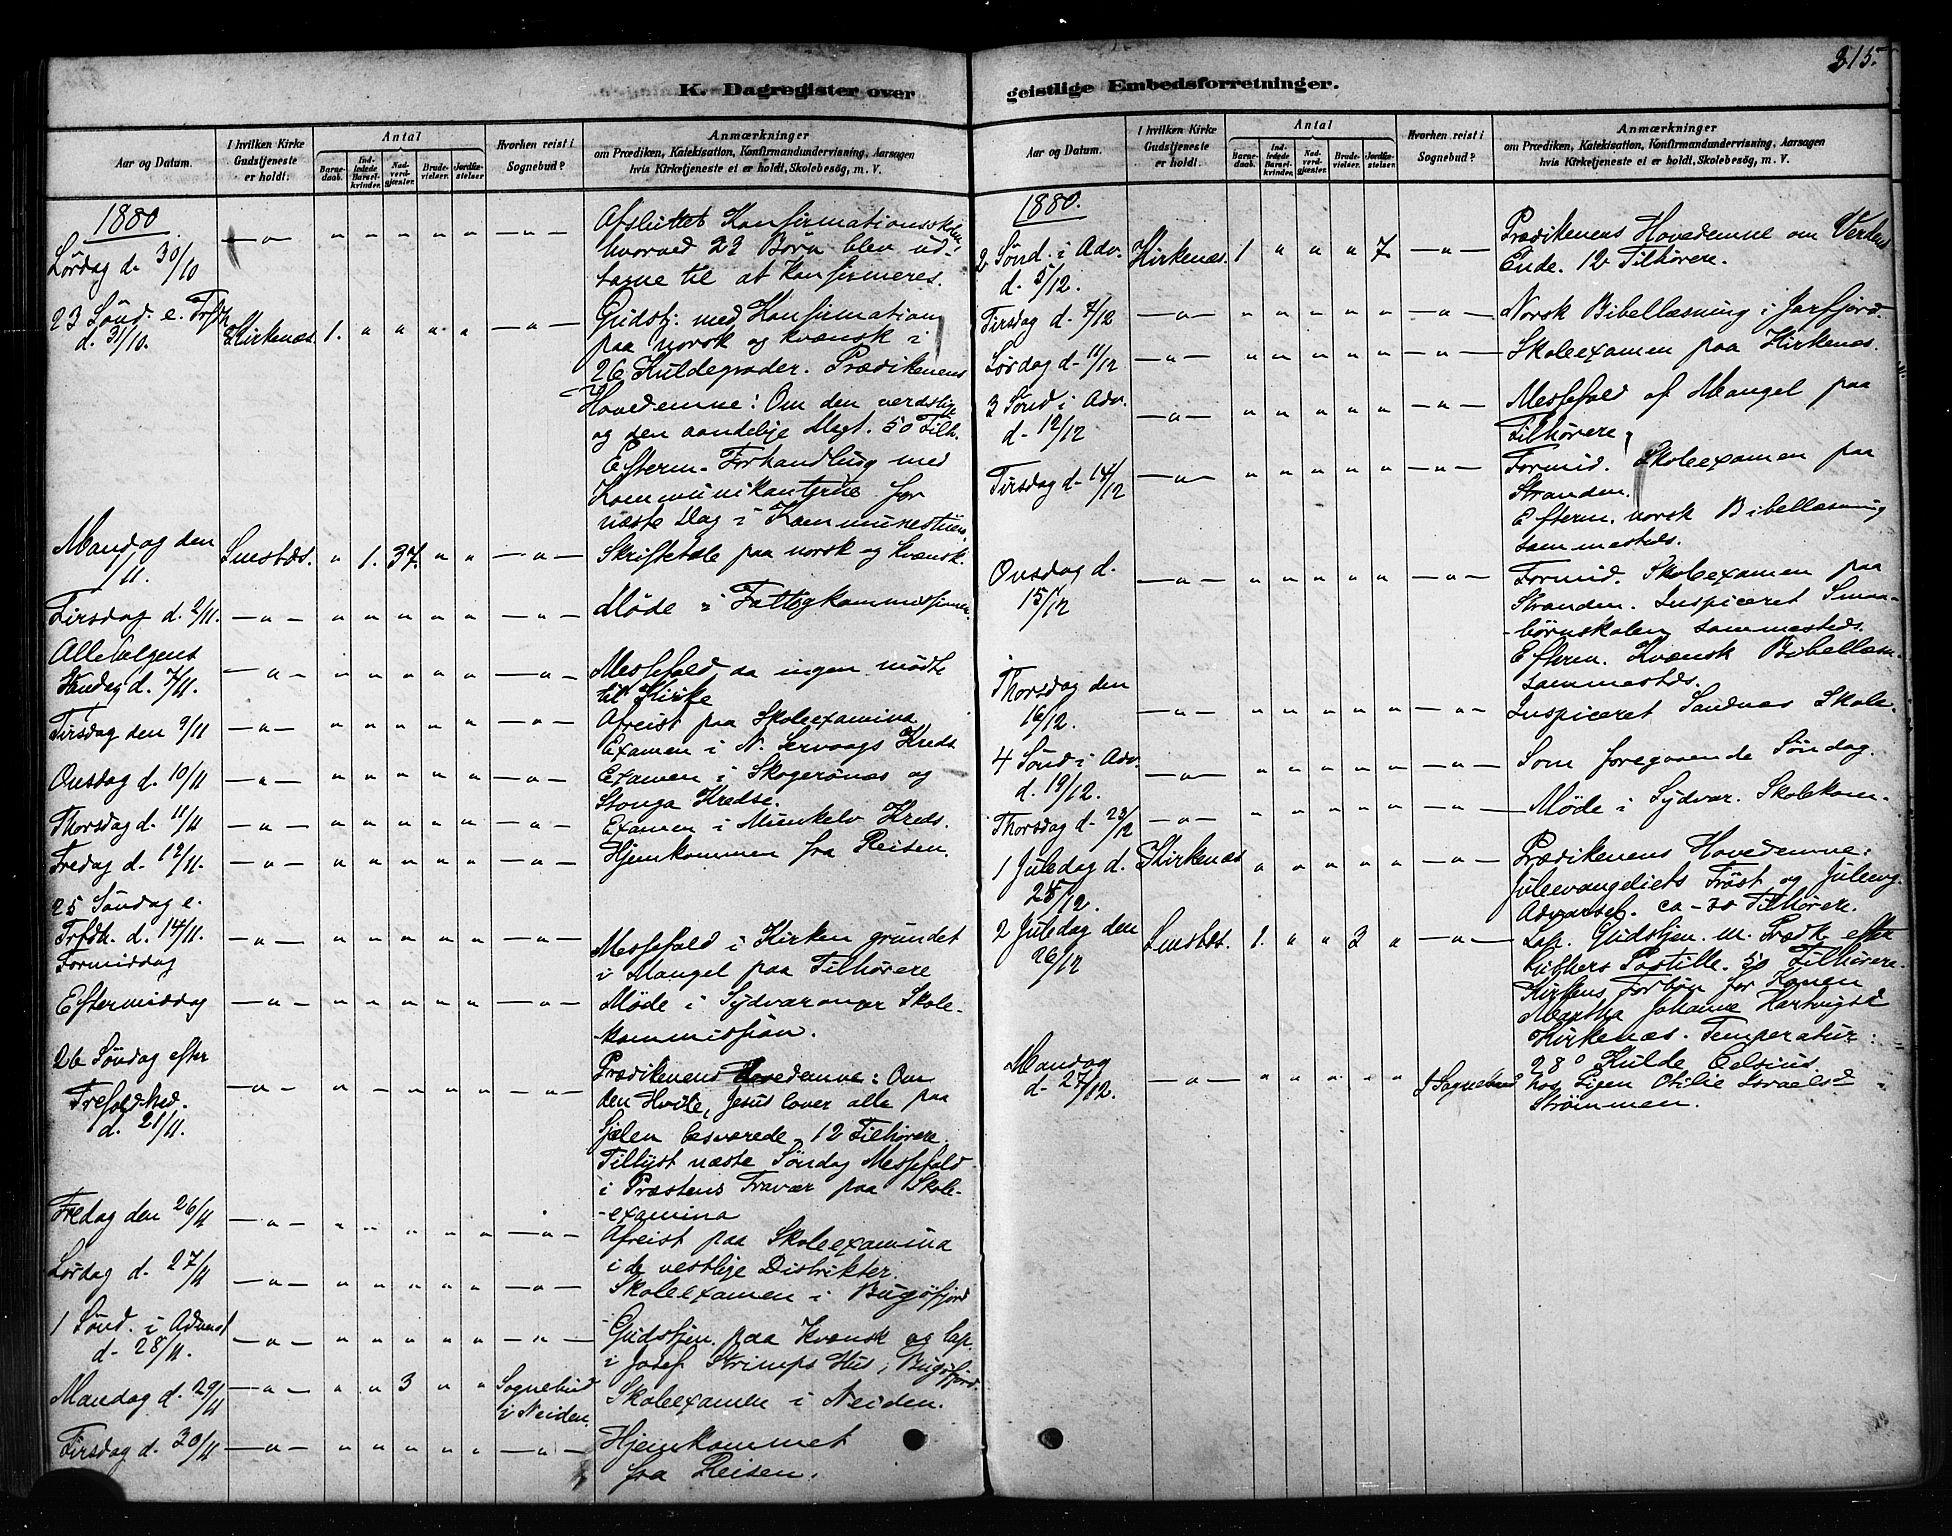 315.
K. Dagregister over
Aar og Datum.
I hvilken Kirke Gudstjeneste er holdt.
Antal
Barnedaab.
Indledede Barselkvinder.
Nadverdgjæster.
Brudevielser.
Jordfæstelser.
Hvorhen reist i Sognebud?
Anmærkninger
om Prædiken, Katekisation, Konfirmandundervisning, Aarsagen
hvis Kirketjeneste ei er holdt, Skolebesög, m. V.
1880
Lördag d. 30/10 — " — " " " " " — " — Afsluttet Konfirmationsskolen,
hvorved 22 Börn blev ud-
tagne til at Konfirmeres.
23 Sönd. e. Trfdh. d. 31/10. Kirkenæs. 1. " " " " — " — Gudstj. med Konfirmation
paa norsk og kvænsk i
26 Kuldegrader. Prædikenens
Hovedemne: Om den verdslige
og den aandelige Magt. 50 Tilh.
Efterm. Forhandling med
Kommunikanterne for
næste Dag i Kommunestuen.
Mandag den 1/11. Smstds. " 1. 37. " " — " — Skriftetale paa norsk og kvænsk.
Tirsdag d. 2/11. — " — " " " " " — " — Möde i Fattigkommissionen.
Allehelgens
Söndag d. 7/11. — " — " " " " " — " — Messefald da ingen mödte
til Kirke
Tirsdag den 9/11 — " — " " " " " — " — Afreist paa Skoleexamina
Examen i N. Servaags Kreds
Onsdag d. 10/11 — " — " " " " " — " — Examen i Skogerönæs og
Stonga Kredse.
Thorsdag d. 11/11 — " — " " " " " — " — Examen i Munkelv Kreds.
Fredag d. 12/11. — " — " " " " " — " — Hjemkommen fra Reisen.
25 Söndag e.
Trfdh. d. 14/11. — " — " " " " " — " — Messefald i Kirken grundet
Formiddag i Mangel paa Tilhörere
Eftermiddag — " — " " " " " — " — Möde i Sydvaranger Skole-
kommission.
26 Söndag efter
Trefoldhed. d. 21/11. — " — " " " " " — " — Prædikenens Hovedemne: Om
den Hvile, Jesus lover alle paa
Sjælen besværede. 12 Tilhörere.
Tillyst næste Söndag Messefald
i Præstens Fravær paa Skole-
-examina
Fredag den 26/11 — " — " " " " " — " — Afreist paa Skoleexamina
i de vestlige Distrikter.
Lördag d. 27/11 — " — " " " " " — " — Skoleexamen i Bugöfjord
1 Sönd. i Advent d. 28/11. — " — " " " " " — " — Gudstjen. paa Kvænsk og lap.
i Josef Strimps Hus i Bugöfjord.
Mandag d. 29/11 — " — " " 3 " " Sognebud i Neiden. Skoleexamen i Neiden.
Tirsdag d. 30/11 — " — " " " " " — " — Hjemkommet
fra Reisen.
geistlige Embedsforretninger.
Aar og Datum.
I hvilken Kirke Gudstjeneste er holdt.
Antal
Barnedaab.
Indledede Barselkvinder.
Nadverdgjæster.
Brudevielser.
Jordfæstelser.
Hvorhen reist i Sognebud?
Anmærkninger
om Prædiken, Katekisation, Konfirmandundervisning, Aarsagen
hvis Kirketjeneste ei er holdt, Skolebesög, m. V.
1880.
2 Sönd. i Adv. d. 5/12. Kirkenæs. 1 " " " 7. — " — Prædikenens Hovedemne om Verdens
Ende. 12 Tilhörere.
Tirsdag d. 7/12 — " — " " " " " — " — Norsk Bibellæsning i Jarfjord.
Lördag d. 11/12 — " — " " " " " — " — Skoleexamen paa Kirkenæs.
3 Sönd i Adv. d. 12/12 — " — " " " " " — " — Messefald af Mangel paa
Tilhörere.
Tirsdag d. 14/12 — " — " " " " " — " — Formid. Skoleexamen paa
Stranden.
Efterm. norsk Bibellæsning
sammesteds.
Onsdag d. 15/12 — " — " " " " " — " — Formid. Skoleexamen paa
Stranden. Inspiceret Smaa-
-börnskolen sammesteds.
Efterm. Kvænsk Bibellæsn.
sammesteds.
Thorsdag den 16/12. — " — " " " " " — " — Inspiceret Sandnæs Skole.
4 Sönd i Adv. d. 19/12. — " — " " " " " — " — Som foregaaende Söndag.
Thorsdag d. 23/12 — " — " " " " " — " — Möde i Sydvar. Skolekom.
1 Juledag d. 25/12. Kirkenæs " " " " " — " — Prædikenens Hovedemne:
Juleevangeliets Tröst og
Advarsel. ca 30 Tilhörere.
2 Juledag den 26/12 Smstds. 1. " " 2 " — " — Lap. Gudstjen. m. Prædk. efter
Luthers Postille. 50 Tilhörere.
Kirkens Forbön for Konen
Martha Johanne Hartvigsd
Kirkenæs. Temperatur:
28° Kulde Celsius.
Mandag d. 27/12. — " — " " " " " I Sognebud hos Pigen Otilie Israelsd
Strömmen.